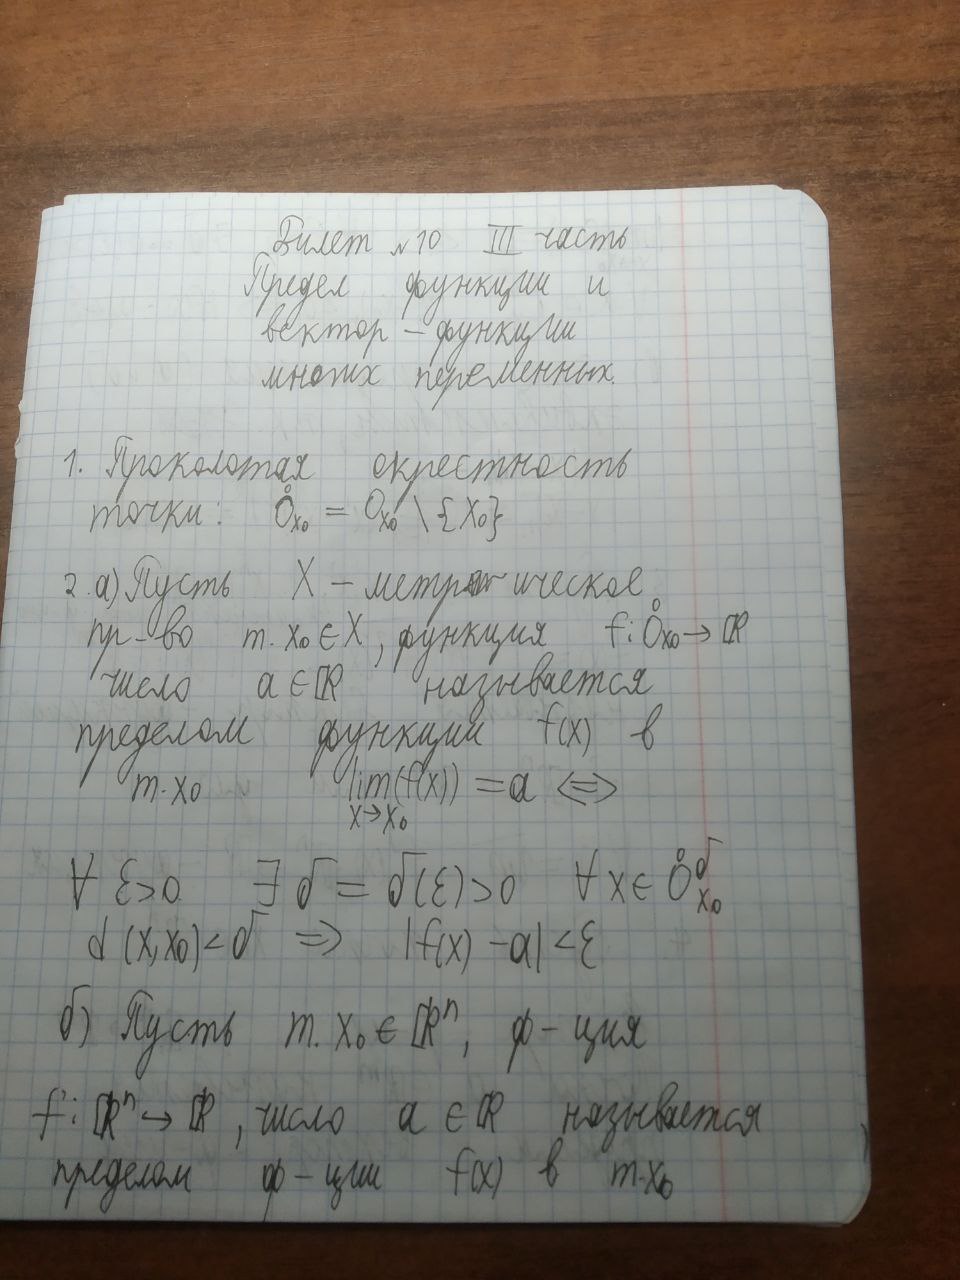 Билет №10 III часть
Предел функции и
вектор – функции
многих переменных.
1. Проколотая окрестность
точки: O̊ₓ₀ = Oₓ₀ \ {x₀}
2. а) Пусть X – метрическое
пр-во т. x₀ ∈ X, функция f: O̊ₓ₀ → ℝ
число a ∈ ℝ называется
пределом функции f(x) в
т. x₀ lim(f(x)) = a ⇔
x→x₀
∀ ε>0 ∃ δ = δ(ε)>0 ∀ x ∈ O̊ᵟₓ₀
d(x, x₀) < δ ⇒ |f(x) – a| < ε
б) Пусть т. x₀ ∈ ℝⁿ, ф – ция
f: ℝⁿ → ℝ, число a ∈ ℝ называется
пределом ф – ции f(x) в т. x₀